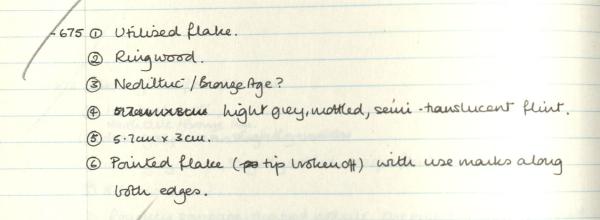 -675 ① Utilised flake.
② Ringwood.
③ Neolithic / Bronze Age?
④ light grey, mottled, semi-translucent flint.
⑤ 5.7cm x 3cm.
⑥ Pointed flake (tip broken off) with use marks along
both edges.